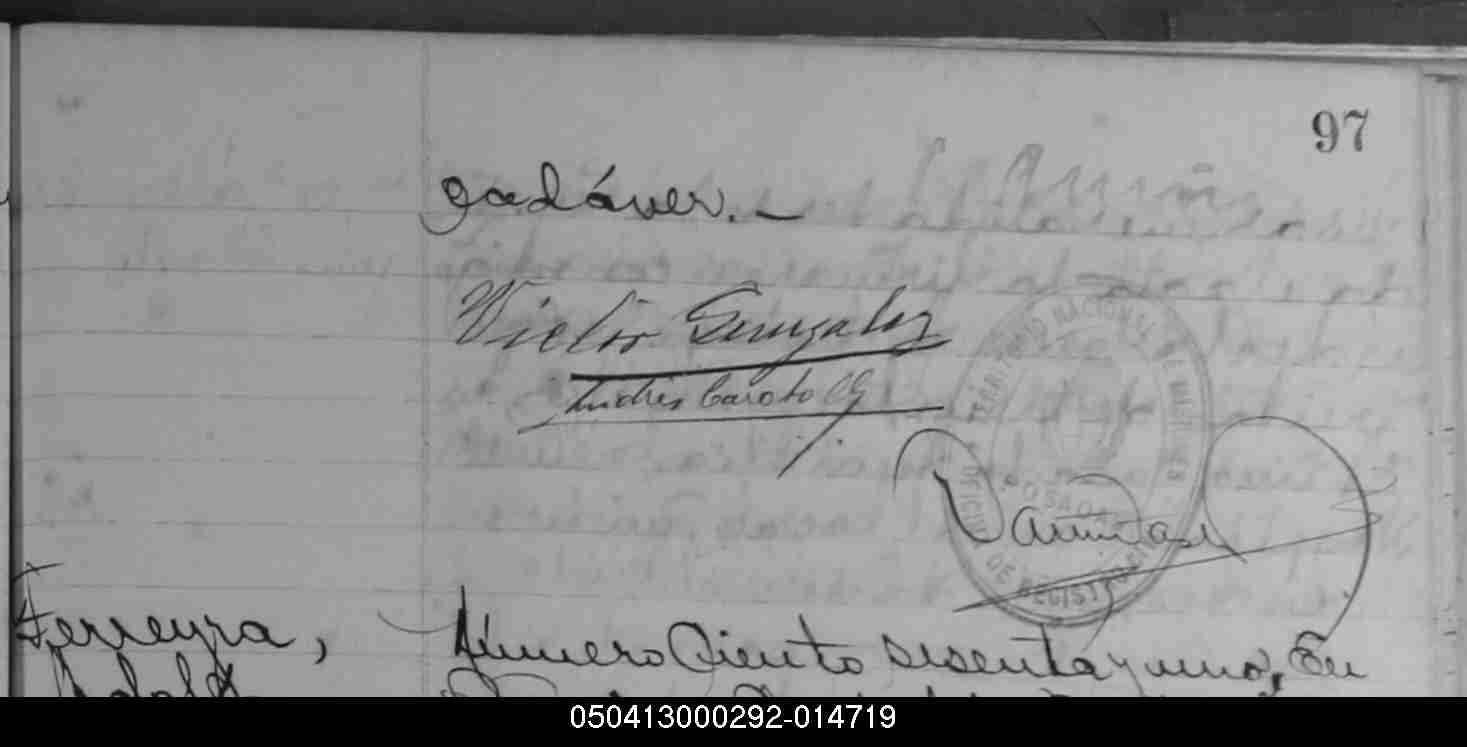 97
cadáver.-
Victor Gonzalez
Andrés
TERRITORIO NACIONAL DE MISIONES
POSADAS
OFICINA DE REGISTRO
Ferreyra, Número Ciento sesenta y uno, En
Adolfo
050413000292-014719